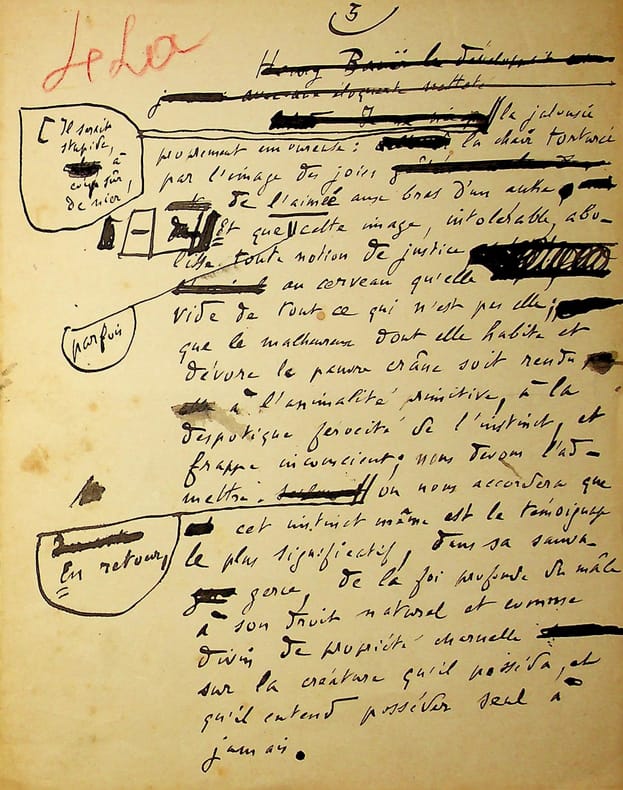 5
Le La
Henry Bauër le développait
avec une éloquente netteté
la jalousie
[ Il serait
stupide,
à
coup sûr
de nier,
proprement amoureuse : la chair torturée
par l'image des joies
de l'aimée aux bras d'un autre,
Et que cette image, intolérable, abo-
lisse toute notion de justice
parfois
au cerveau qu'elle
vide de tout ce qui n'est pas elle ;
que le malheureux dont elle habite et
dévore le pauvre crâne soit rendu
à l'animalité primitive, à la
despotique férocité de l'instinct, et
frappe inconscient ; nous devons l'ad-
mettre. on nous accordera que
En retour,
cet instinct même est le témoignage
le plus significatif, dans sa sauva-
gerie, de la foi profonde du mâle
à son droit naturel et comme
divin de propriété charnelle
sur la créature qu'il posséda, et
qu'il entend posséder seul à
jamais.